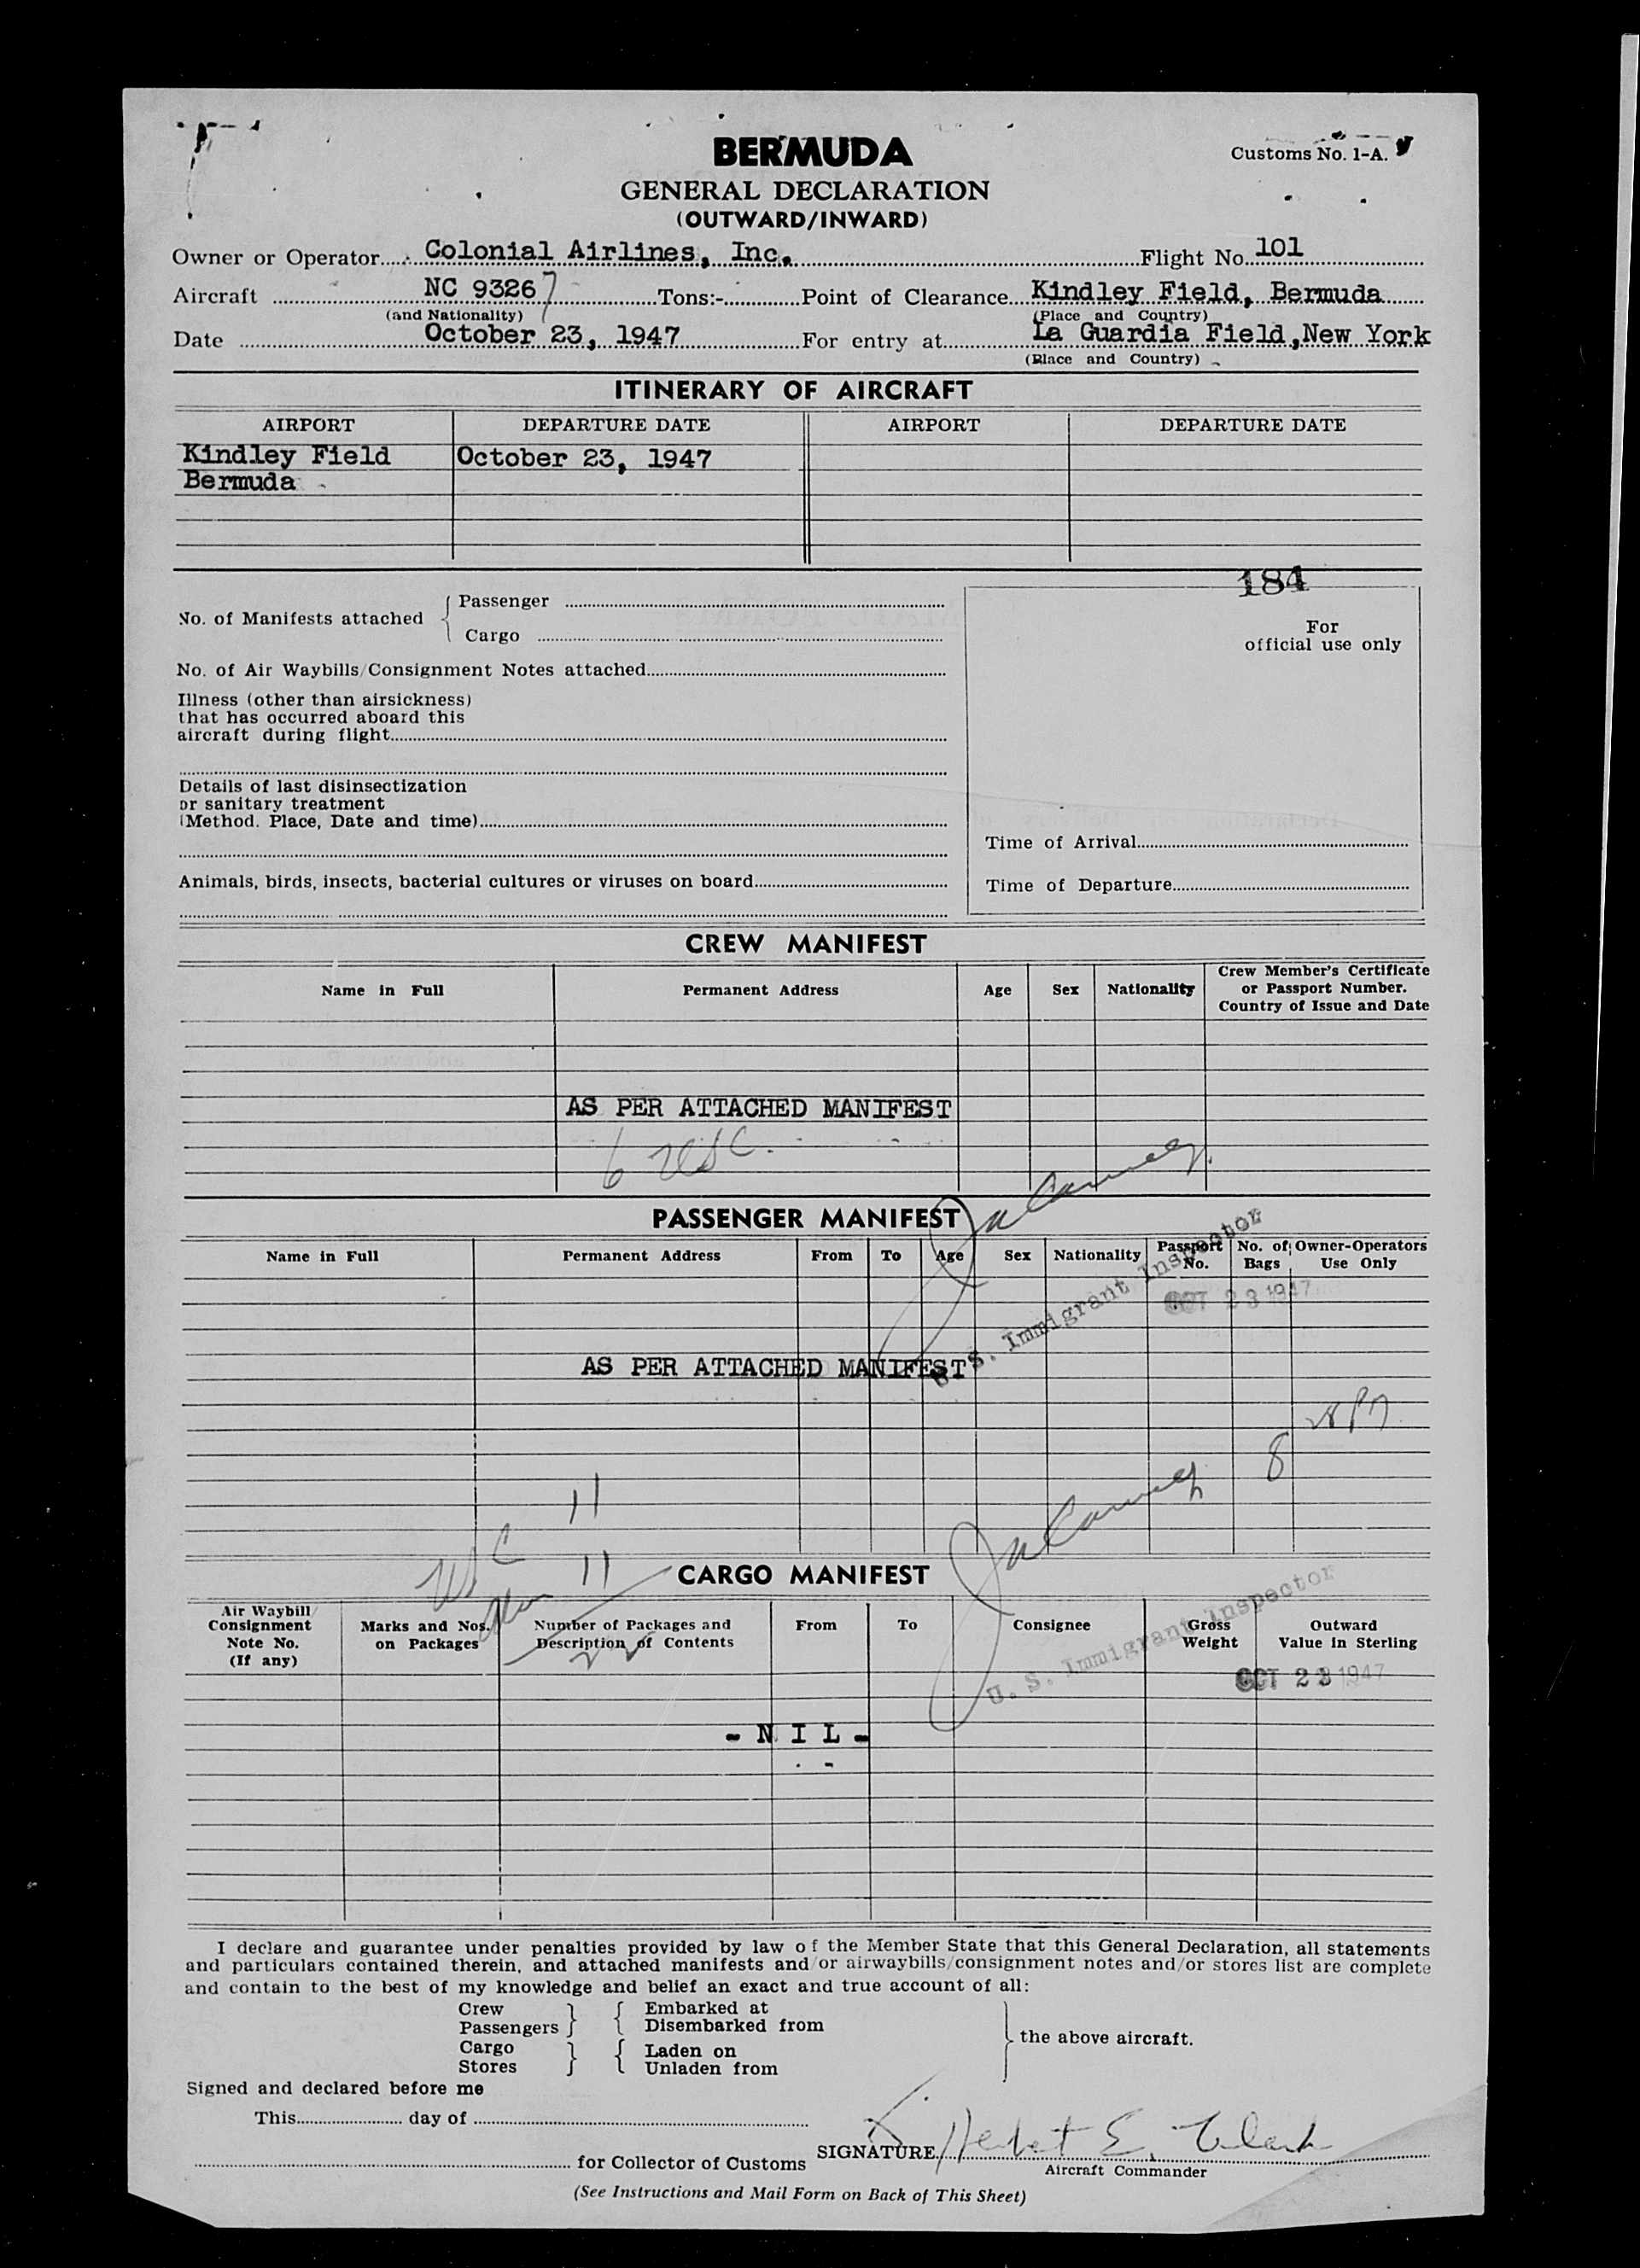 BERMUDA
Customs No. 1-A.
GENERAL DECLARATION
(OUTWARD/INWARD)
Owner or Operator Colonial Airlines, Inc. Flight No. 101
Aircraft NC 93267 Tons:- Point of Clearance Kindley Field, Bermuda
(and Nationality) (Place and Country)
Date October 23, 1947 For entry at La Guardia Field, New York
(Place and Country)
ITINERARY OF AIRCRAFT
AIRPORT DEPARTURE DATE AIRPORT DEPARTURE DATE
Kindley Field October 23, 1947
Bermuda
184
No. of Manifests attached { Passenger
Cargo
For
official use only
No. of Air Waybills/Consignment Notes attached
Illness (other than airsickness)
that has occurred aboard this
aircraft during flight
Details of last disinsectization
or sanitary treatment
(Method. Place, Date and time)
Time of Arrival
Animals, birds, insects, bacterial cultures or viruses on board
Time of Departure
CREW MANIFEST
Name in Full Permanent Address Age Sex Nationality Crew Member's Certificate
or Passport Number.
Country of Issue and Date
AS PER ATTACHED MANIFEST
6 USC.
PASSENGER MANIFEST
Name in Full Permanent Address From To Age Sex Nationality Passport No. No. of Bags Owner-Operators Use Only
U. S. Immigrant Inspector
OCT 23 1947
AS PER ATTACHED MANIFEST
8
11
11
CARGO MANIFEST
Air Waybill/
Consignment
Note No.
(If any)
Marks and Nos.
on Packages
Number of Packages and
Description of Contents
From To Consignee Gross
Weight
Outward
Value in Sterling
22
U. S. Immigrant Inspector
OCT 23 1947
- N I L -
I declare and guarantee under penalties provided by law of the Member State that this General Declaration, all statements
and particulars contained therein, and attached manifests and/or airwaybills/consignment notes and/or stores list are complete
and contain to the best of my knowledge and belief an exact and true account of all:
Crew } { Embarked at
Passengers } { Disembarked from
} the above aircraft.
Cargo } { Laden on
Stores } { Unladen from
Signed and declared before me
This day of
SIGNATURE Herbert E. Clark
for Collector of Customs
Aircraft Commander
(See Instructions and Mail Form on Back of This Sheet)